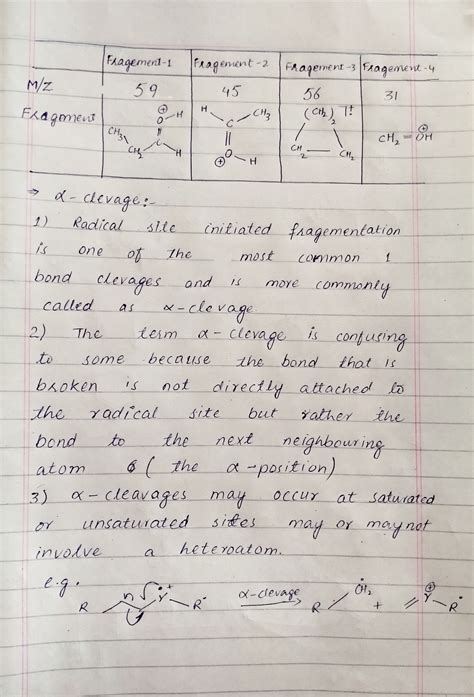 Fragement-1 Fragement-2 Fragement-3 Fragement-4
M/Z 59 45 56 31
Fragement
⊕
O—H
CH3
CH2
C
H
H
C
CH3
O
⊕
H
(CH2)2
CH
CH2
CH2 = OH
⇒ α-clevage:-
1) Radical site initiated fragementation
is one of the most common 1
bond clevages and is more commonly
called as α-clevage.
2) The term α-clevage is confusing
to some because the bond that is
broken is not directly attached to
the radical site but rather the
bond to the next neighbouring
atom ( the α-position)
3) α-cleavages may occur at saturated
or unsaturated sites may or may not
involve a heteroatom.
e.g. R Y R α-clevage R CH2 + Y R